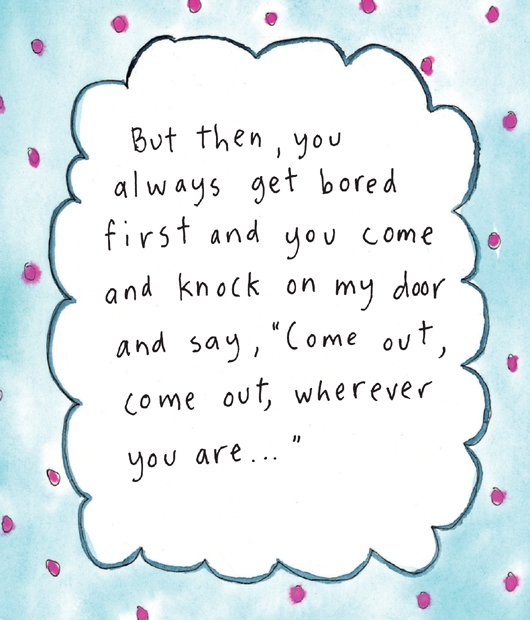 But then, you
always get bored
first and you come
and knock on my door
and say, "Come out,
come out, wherever
you are... "